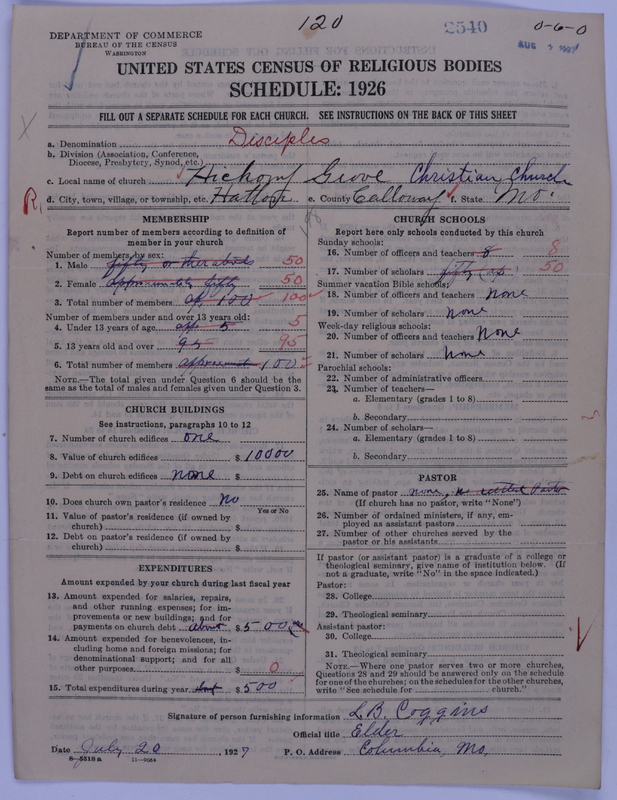 120
2540
0-6-0
AUG 1927
DEPARTMENT OF COMMERCE
BUREAU OF THE CENSUS
WASHINGTON
UNITED STATES CENSUS OF RELIGIOUS BODIES
SCHEDULE: 1926
FILL OUT A SEPARATE SCHEDULE FOR EACH CHURCH. SEE INSTRUCTIONS ON THE BACK OF THIS SHEET
a. Denomination Disciples
b. Division (Association, Conference,
Diocese, Presbytery, Synod, etc.)
c. Local name of church Hickory Grove Christian Church
R. d. City, town, village, or township, etc. Hatton e. County Calloway f. State Mo.
MEMBERSHIP
Report number of members according to definition of
member in your church
Number of members by sex:
1. Male fifty or thereabouts 50
2. Female approximately fifty 50
3. Total number of members ap 100 100
Number of members under and over 13 years old:
4. Under 13 years of age app 5 5
5. 13 years old and over 95 95
6. Total number of members approximate 100
NOTE.—The total given under Question 6 should be the
same as the total of males and females given under Question 3.
CHURCH BUILDINGS
See instructions, paragraphs 10 to 12
7. Number of church edifices one
8. Value of church edifices $ 10000
9. Debt on church edifices none $
10. Does church own pastor's residence No
Yes or No
11. Value of pastor's residence (if owned by
church) $
12. Debt on pastor's residence (if owned by
church) $
EXPENDITURES
Amount expended by your church during last fiscal year
13. Amount expended for salaries, repairs,
and other running expenses; for im-
provements or new buildings; and for
payments on church debt about $ 500
14. Amount expended for benevolences, in-
cluding home and foreign missions; for
denominational support; and for all
other purposes $ 0
15. Total expenditures during year $ 500
CHURCH SCHOOLS
Report here only schools conducted by this church
Sunday schools:
16. Number of officers and teachers 8 8
17. Number of scholars fifty (ap 50
Summer vacation Bible schools:
18. Number of officers and teachers None
19. Number of scholars none
Week-day religious schools:
20. Number of officers and teachers None
21. Number of scholars None
Parochial schools:
22. Number of administrative officers
23. Number of teachers—
a. Elementary (grades 1 to 8)
b. Secondary
24. Number of scholars—
a. Elementary (grades 1 to 8)
b. Secondary
PASTOR
25. Name of pastor none, no settled Pastor
(If church has no pastor, write "None")
26. Number of ordained ministers, if any, em-
ployed as assistant pastors
27. Number of other churches served by the
pastor or his assistants
If pastor (or assistant pastor) is a graduate of a college or
theological seminary, give name of institution below. (If
not a graduate, write "No" in the space indicated.)
Pastor:
28. College
29. Theological seminary
Assistant pastor:
30. College
31. Theological seminary
NOTE.—Where one pastor serves two or more churches,
Questions 28 and 29 should be answered only on the schedule
for one of the churches; on the schedules for the other churches
write "See schedule for church."
Signature of person furnishing information L.B. Coggins
Official title Elder
Date July 20, 1927 P. O. Address Columbia, Mo.
8—5518a 11—9084